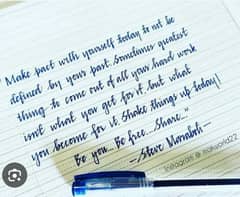 Make pact with yourself today to not be
defined by your past. Sometimes greatest
thing to come out of all your hard work
isn't what you get for it but what
you become for it. Shake things up today!
Be you... Be free... Share..."
- Steve Maraboli -
Instagram @